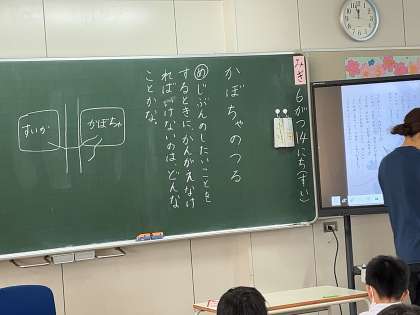 みぎ
6がつ14にち(すい)
かぼちゃのつる
めじぶんのしたいことを
するときに、かんがえなけ
ればいけないのは、どんな
ことかな。
かぼちゃ
すいか